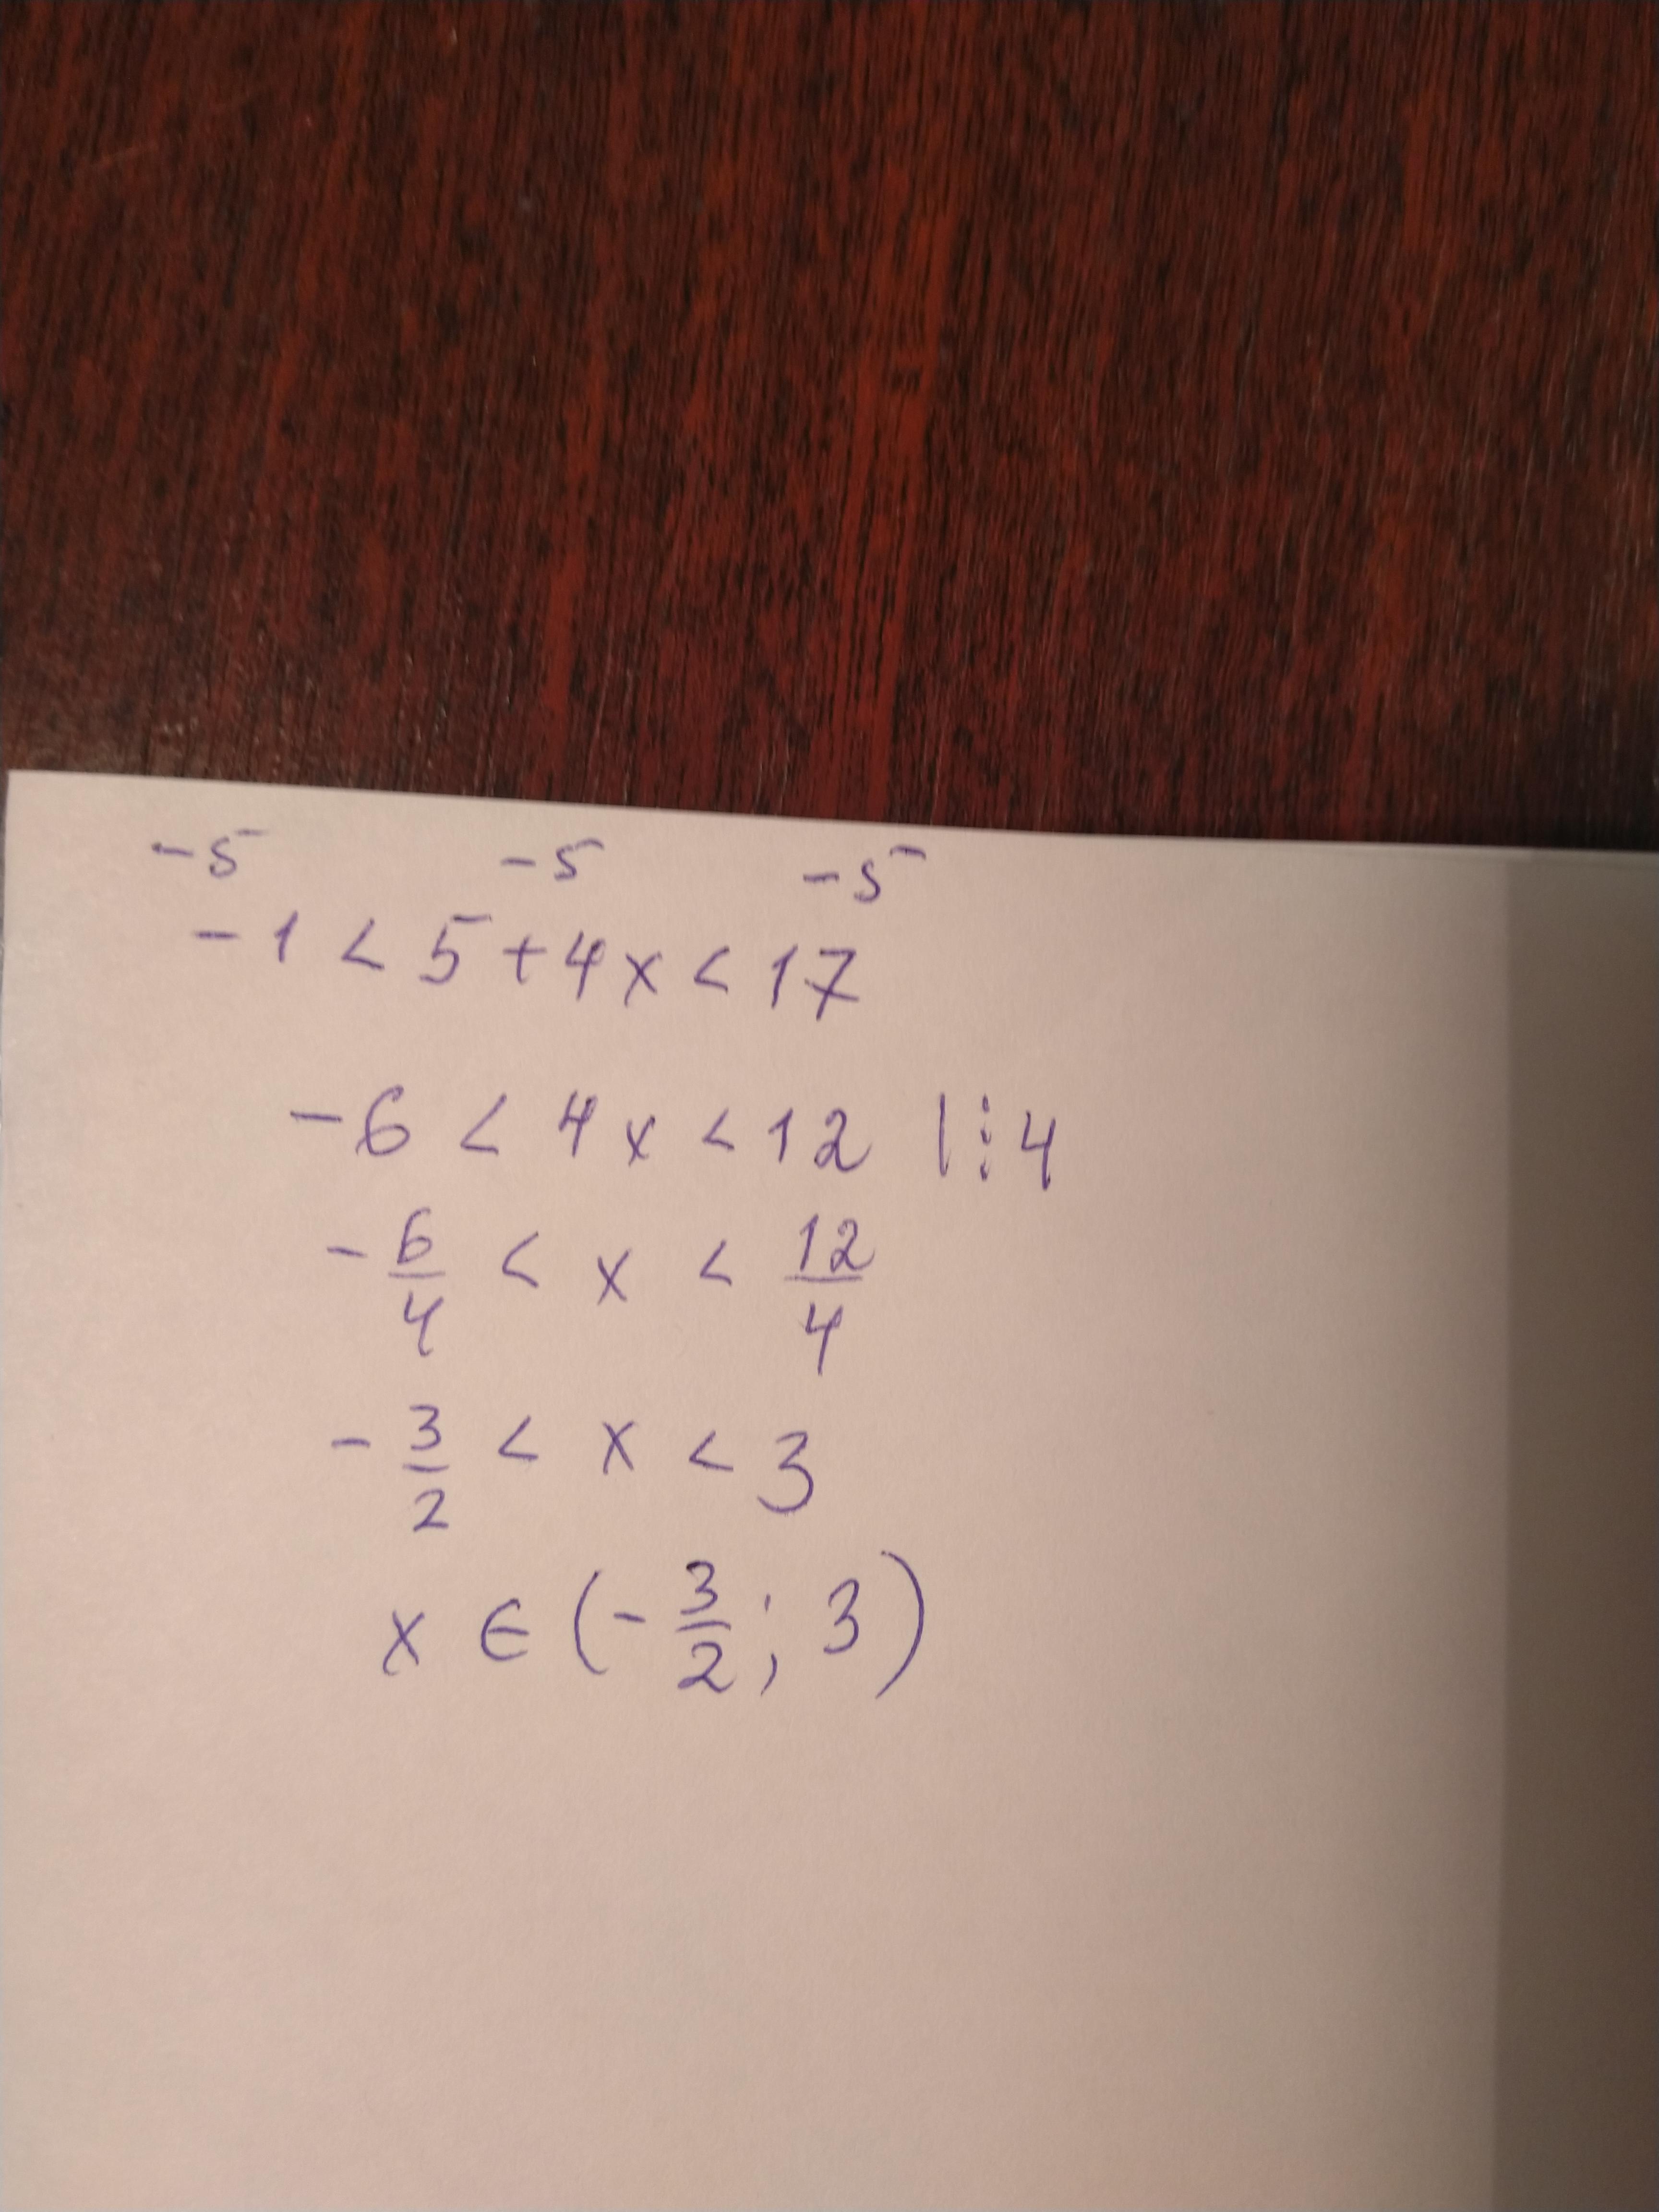 -5 -5 -5
-1 < 5 + 4x < 17
-6 < 4x < 12 |:4
-6/4 < x < 12/4
-3/2 < x < 3
x ∈ (-3/2; 3)